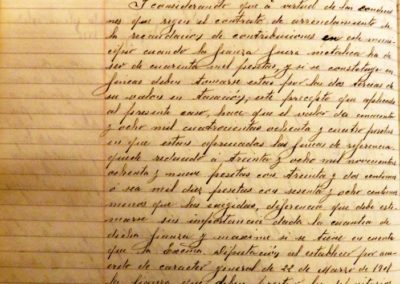 Y considerando que á virtud de las condicio
nes que rigen el contrato de arrendamiento de
la recaudación de contribuciones en este muni
cipio cuando la fianza fuera metálica ha de
ser de cuarenta mil pesetas, y si se constituye en
fincas deben tomarse estas por las dos terceras de
su valor en tasación; este precepto que aplicado
al presente caso, hace que el valor de cincuenta
y ocho mil cuatrocientas ochenta y cuatro pesetas
en que estan apreciadas las fincas de referencia
quede reducido á treinta y ocho mil novecientas
ochenta y nueve pesetas con treinta y dos centimos
ó sea mil diez pesetas con sesenta y ocho centimos
menos que las exigidas, diferencia que debe esti
marse sin importancia dada la cuantia de
dicha fianza y maxime si se tiene en cuenta
que la Excma. Diputación al establecer por acu
erdo de caracter general de 22 de Marzo de 1901
la fianza que deben